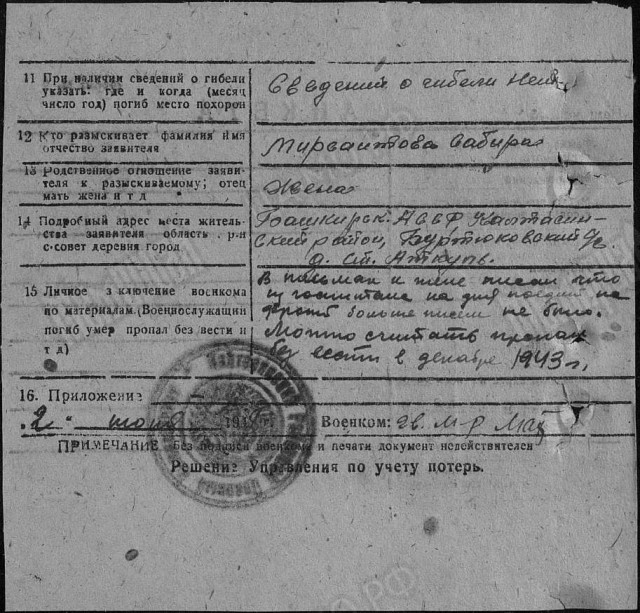 11 При наличии сведений о гибели
указать: где и когда (месяц
число год) погиб место похорон
Сведений о гибели нет
12 Кто разыскивает фамилия имя
отчество заявителя
Сабира
13 Родственное отношение заяви-
теля к разыскиваемому; отец
мать жена и т д
Жена
14 Подробный адрес места житель-
ства заявителя область р-н
с-совет деревня город
Башкирск. АССР Калтасин-
ский район,
д. Ст.
15 Личное з ключение военкома
по материалам. (Военнослужащии
погиб умер пропал без вести и
т д)
В письмах к жене писал что
из госпиталя на днях поедит на
фронт больше писем не было.
Можно считать пропал
без вести в декабре 1943 г,
16. Приложение
"2" 194 г.
Военком: гв. м-р
ПРИМЕЧАНИЕ Без подписи военкома и печати документ недействителен
Решение Управления по учету потерь.